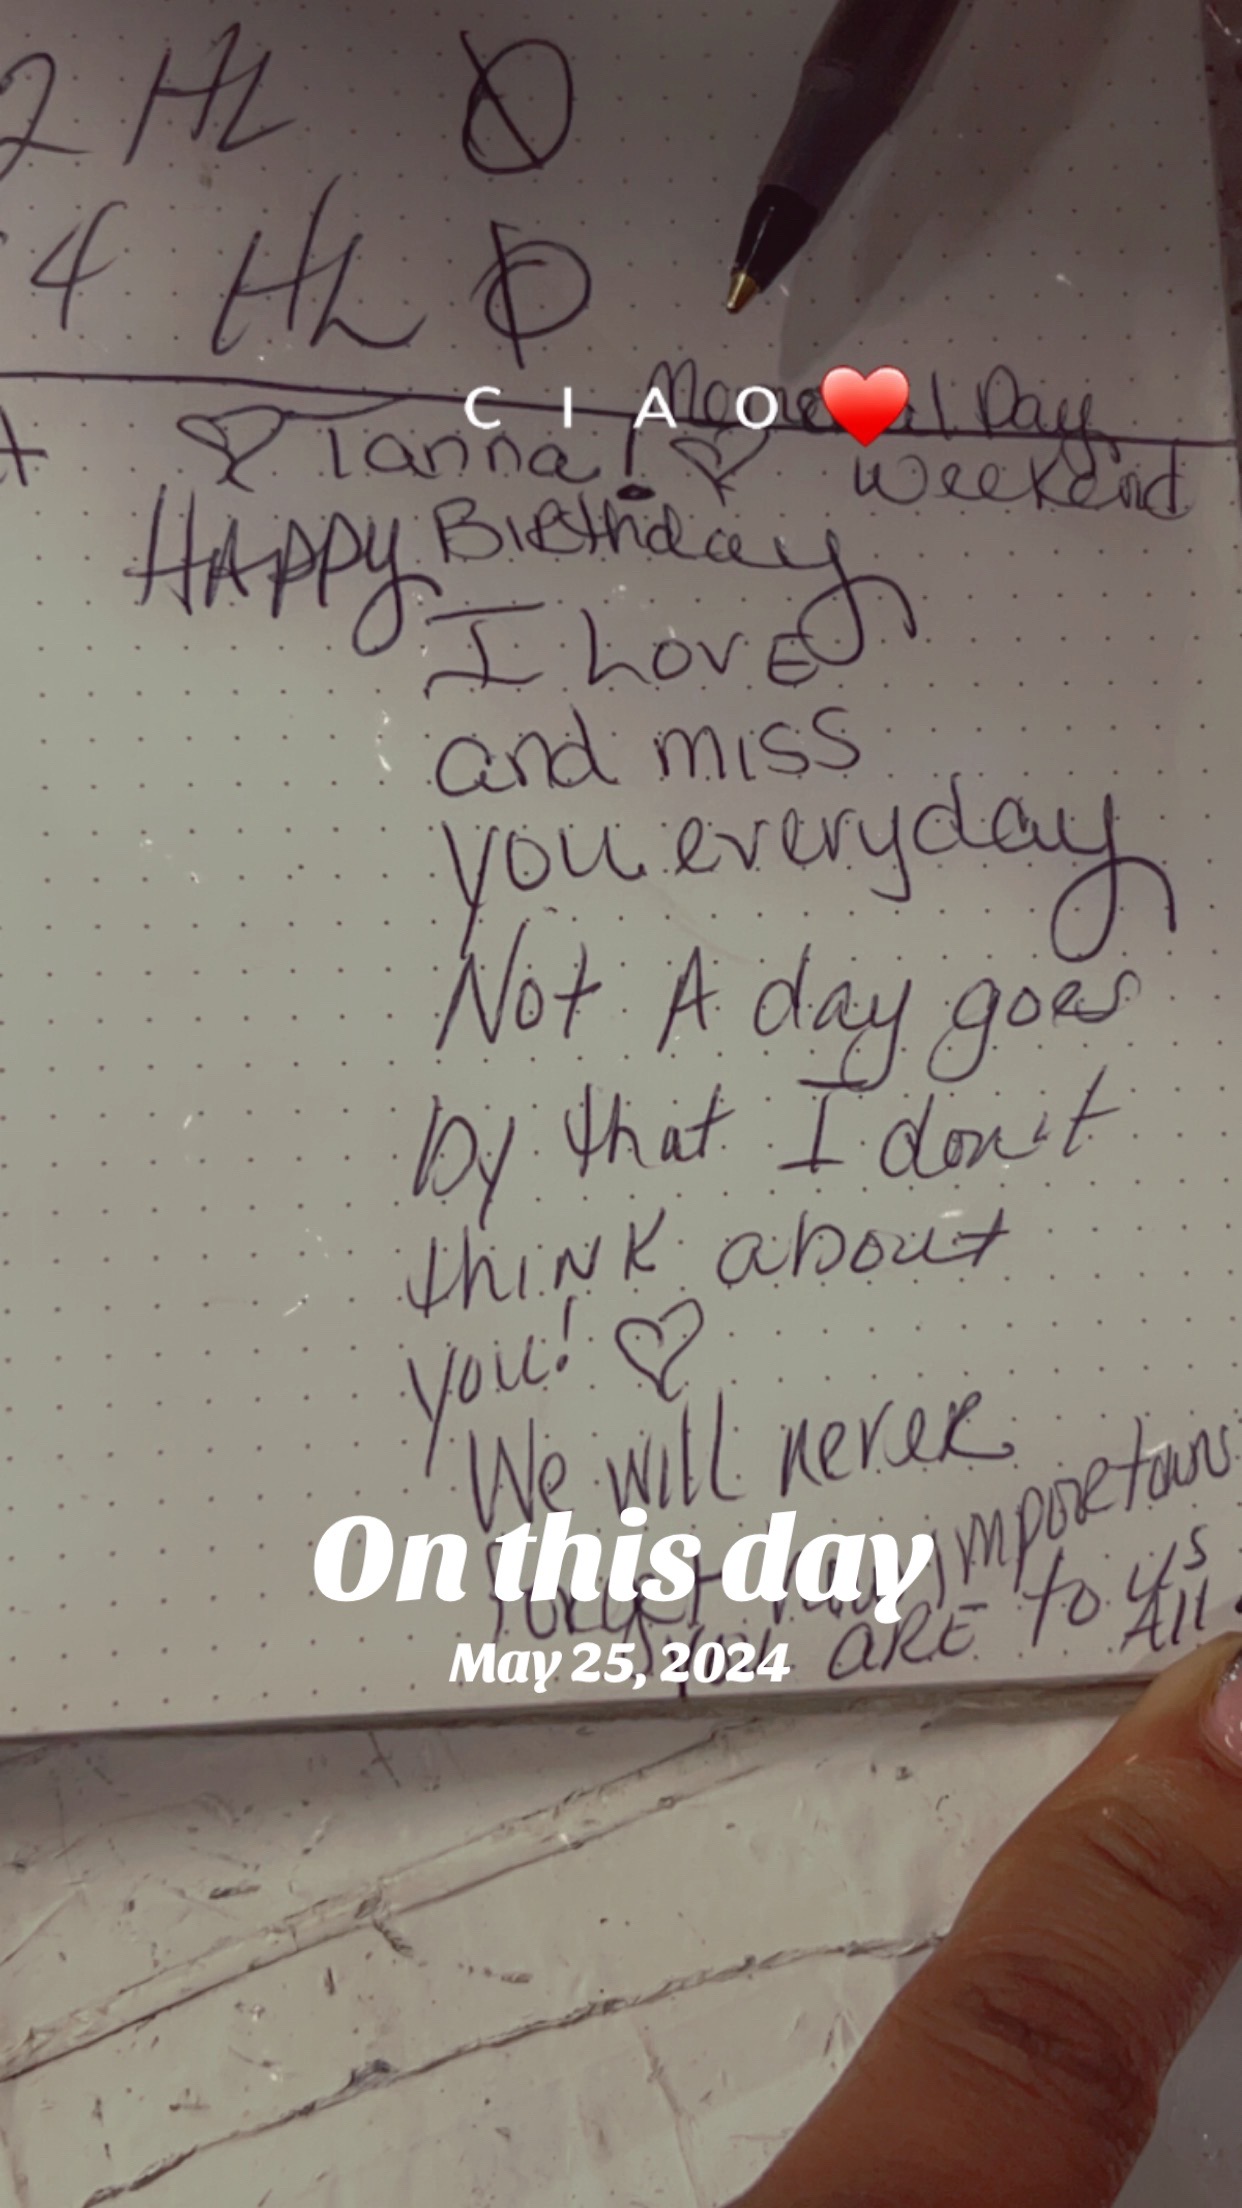 2 HL Ø
4 HL Ø
CIAO❤️
Memorial Day
♡ Tanna! ♡ Weekend
HAPPY Birthday
I LOVE
and miss
you everyday
Not A day goes
by that I don't
thINK about
you! ♡
We will never
forget how importans
you ARE to us
All
On this day
May 25, 2024